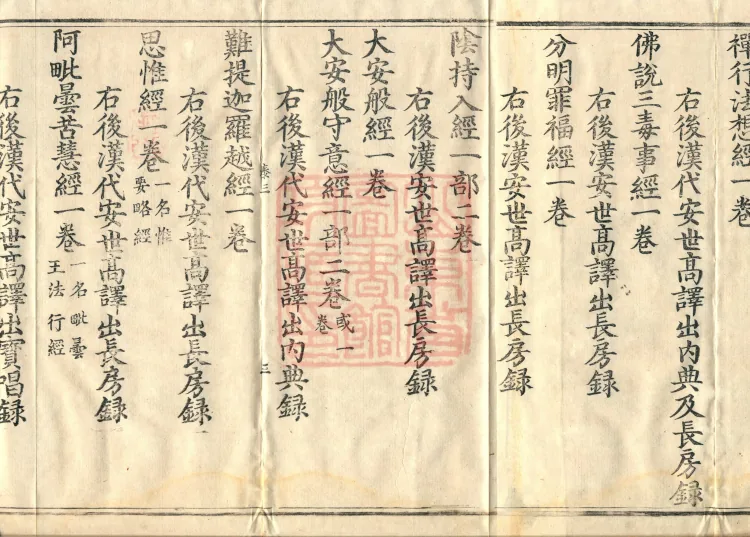 禪行法想經一卷
右後漢代安世高譯出內典及長房録
佛說三毒事經一卷
右後漢安世高譯出長房録
分明罪福經一卷
右後漢安世高譯出長房録
陰持入經一部二卷
右後漢安世高譯出長房録
大安般經一卷
大安般守意經一部二卷或一卷
右後漢代安世高譯出內典録
難提迦羅越經一卷
右後漢代安世高譯出長房録
思惟經一卷一名惟要略經
右後漢代安世高譯出長房録
阿毗曇苦慧經一卷一名毗曇王法行經
右後漢代安世高譯出寶唱録
三